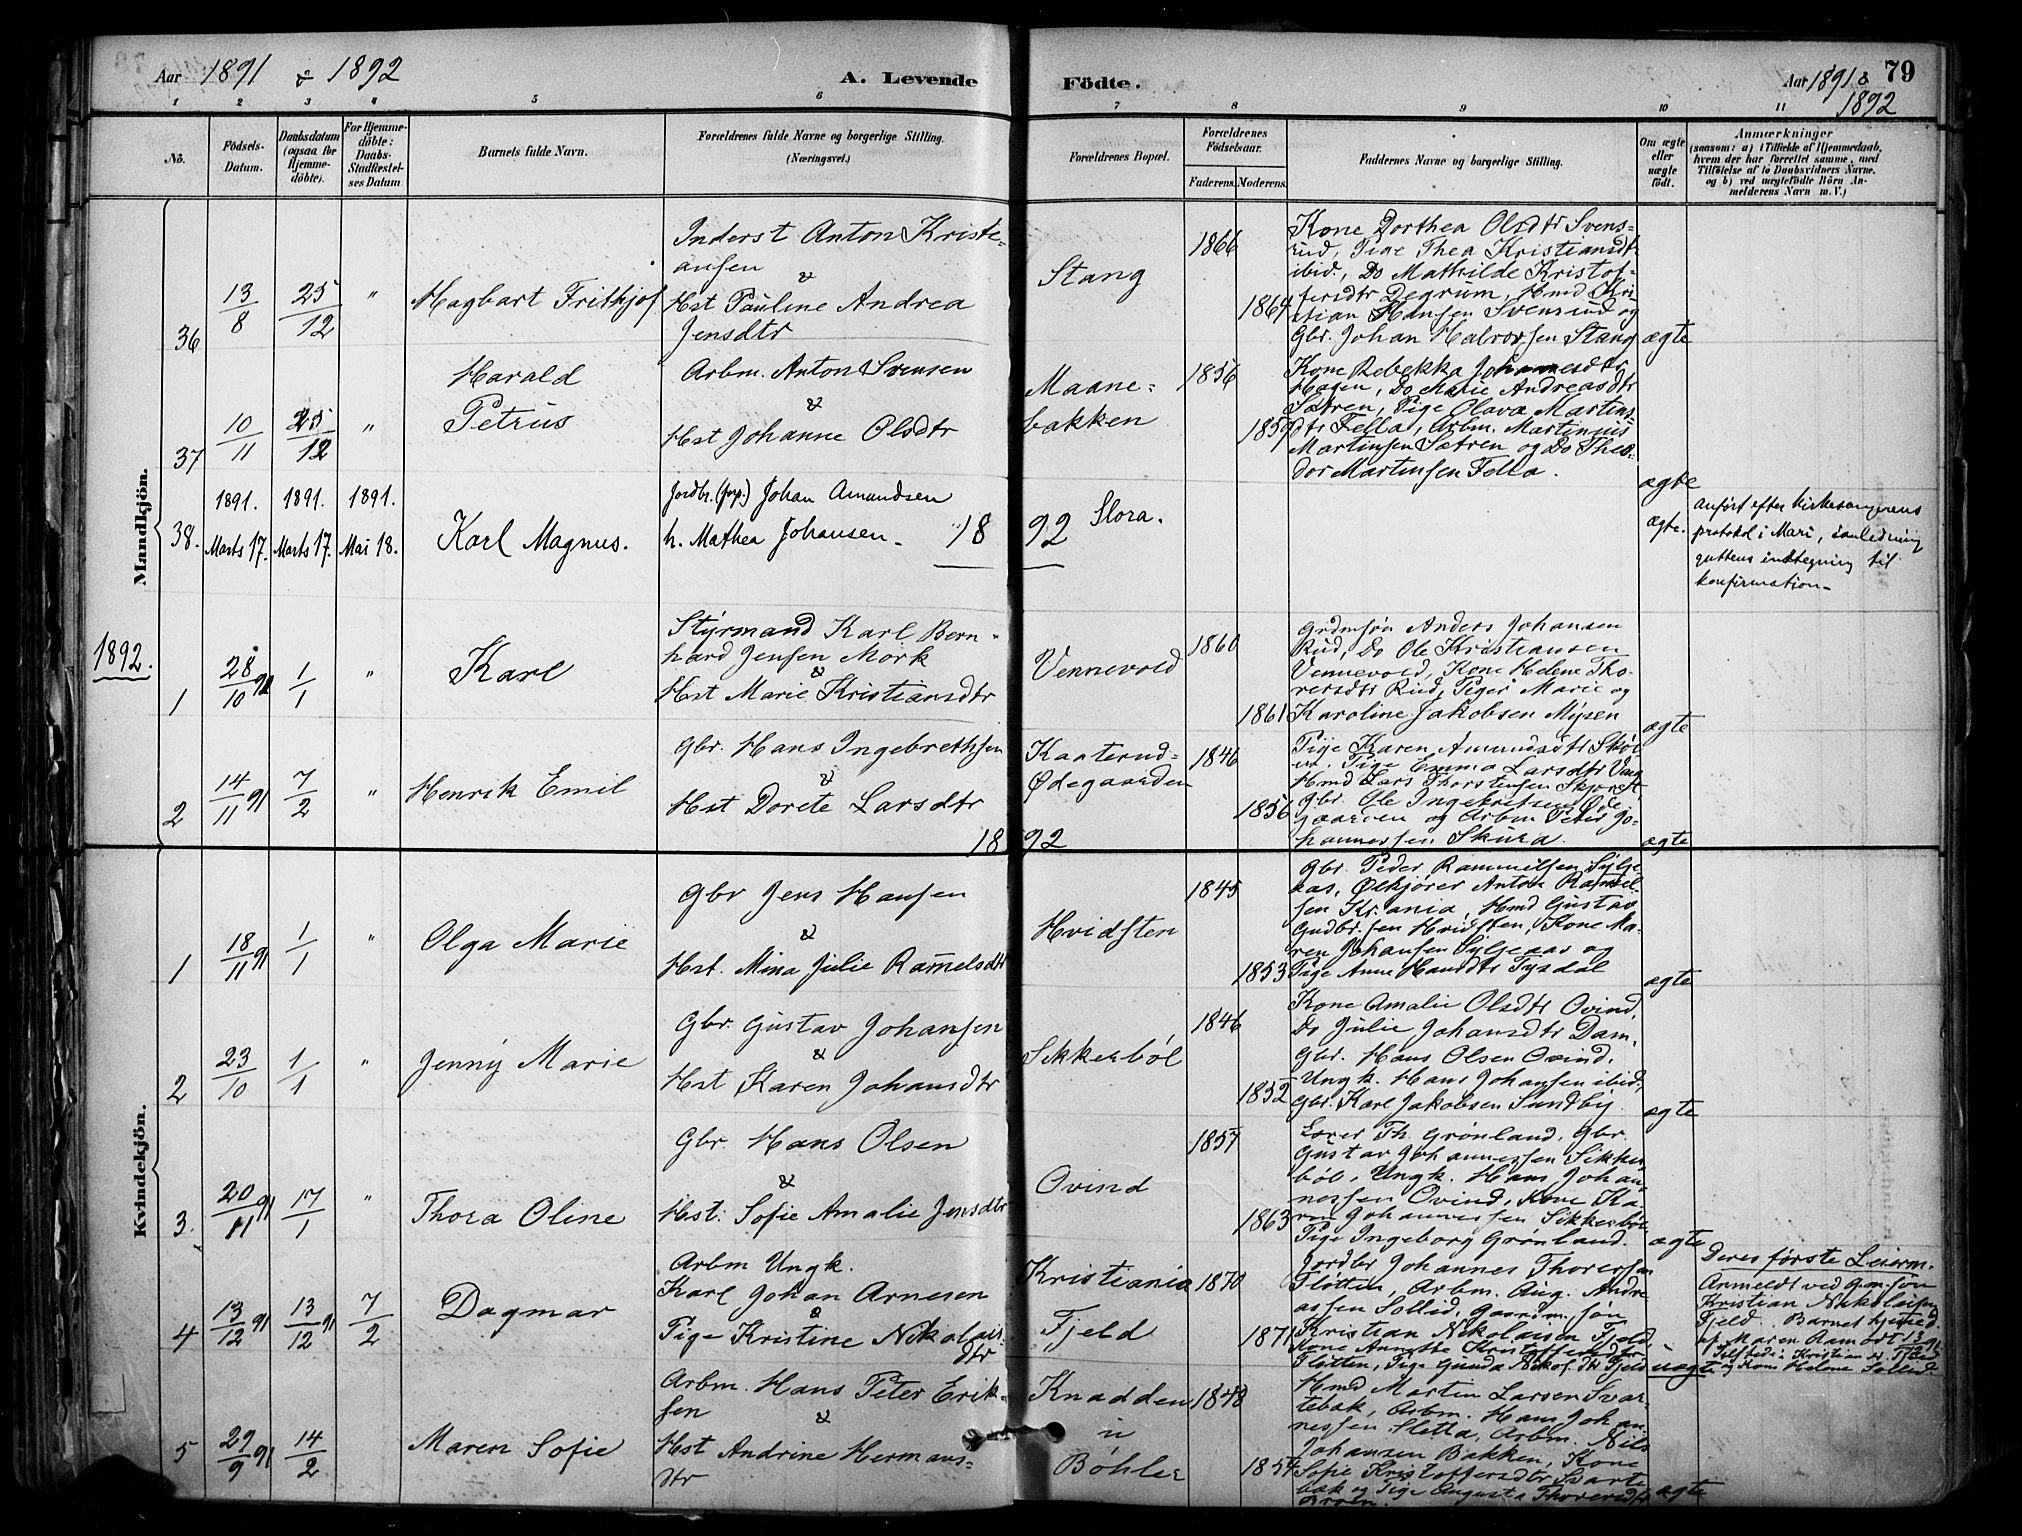 Aar 1891 & 1892
A. Levende Födte.
Aar 1891 & 1892
79
1 2 3 4 5 6 7 8 9 10 11
No.
Födsels-Datum.
Daabsdatum (ogsaa for Hjemme-döbte).
For Hjemme-döbte: Daabs-Stadfæstel-ses Datum
Barnets fulde Navn.
Forældrenes fulde Navne og borgerlige Stilling. (Næringsvei.)
Forældrenes Bopæl.
Forældrenes Födselsaar.
Faderens. Moderens.
Faddernes Navne og borgerlige Stilling.
Om ægte eller uægte födt.
Anmærkninger
(saasom: a) i Tilfælde af Hjemmedaab, hvem der har forrettet samme, med Tilföielse af to Daabsvidners Navne, og b) ved uægtefödte Börn An-melderens Navn m. V.)
Mandkjön.
36 13/8 25/12 "
Hagbart Frithjof
Inderst Anton Kristi-
ansen
&
Hst Pauline Andrea
Jensdtr
Stang
1866
1864
Kone Dorthea Olsdtr Svens-
rud, Pige Thea Kristiansdtr
ibid., Do Mathilde Kristof-
fersdtr Degrum, Hmd Chri-
stian Hansen Svensrud og
Gbr. Johan Halvorsen Stang
ægte
37 10/11 25/12 "
Harald
Petrus
Arbm. Anton Svensen
&
Hst Johanne Olsdtr
Maane-
bakken
1856
1859
Kone Rebekka Johannesdtr
Hagen, Do Marie Andreasdtr
Sætren, Pige Olava Martins-
dtr Fella, Arbm. Martinius
Martinsen Sætren og Do Theo-
dor Martinsen Fella.
ægte
38. 1891. Marts 17. 1891. Marts 17. 1891. Mai 18.
Karl Magnus.
Jordbr. (forp.) Johan Amundsen
h. Mathea Johansen.
Slora.
ægte.
anfört efter kirkesangerens
protokol i Mari, i anledning
guttens indtegning til
konfirmation.
1892
1892.
1 28/10 91 1/1 "
Karl
Styrmand Karl Bern-
hard Jensen Mørk
&
Hst Marie Kristiansdtr
Vennevold
1860
1861
Grdmsøn Anders Johansen
Rud, Do Ole Kristiansen
Vennevold, Kone Helene Tho-
rersdtr Rud, Piger Marie og
Karoline Jakobsen Mysen
ægte
2 14/11 91 7/2 "
Henrik Emil
Gbr. Hans Ingebrethsen
&
Hst Dorete Larsdtr
Kaaterud-
Ødegaarden
1846
1856
Pige Karen Amundsdtr
Pige Emma Larsdtr
Hmd Lars Thorstensen
Gbr. Ole Ingebretsen Øde-
gaarden og Arbm Peter Jo-
hannessen Skura.
ægte
1892
Kvindekjön.
1 18/11 91 1/1 "
Olga Marie
Gbr Jens Hansen
&
Hst. Mina Julie Ramelsdtr
Hvidsten
1845
1853
Gbr. Peder Rammelsen Sylje-
aas, Ølkjører Anton Ramel-
sen Kr.ania, Hmd Gustav
Gudbr.sen Hvidsten, Kone Ma-
ren Johansen Syljeaas og
Pige Anne Hansdtr
ægte
2 23/10 1/1 "
Jenny Marie
Gbr. Gustav Johansen
&
Hst Karen Johansdtr
Sikkerbøl
1846
1852
Kone Amalie Olsdtr Ovind,
Do Julie Johansdtr Dam,
Gbr. Hans Olsen Ovind,
Ungk. Hans Johansen ibid,
Gbr. Karl Jakobsen Sundby
ægte
3. 20/11 91 17/1 "
Thora Oline
Gbr Hans Olsen
&
Hst: Sofie Amalie Jensdtr
Ovind
1857
1863
Lærer Th. Grønland, Gbr
Gustav Johannessen Sikker-
bøl, Ungk. Hans Johan-
nessen Ovind, Kone Ka-
ren Johannessen Sikkerbøl
Pige Ingeborg Grønland.
ægte
4 13/12 91 13/12 91 7/2
Dagmar
Arbm Ungk.
Karl Johan Arnesen
&
Pige Kristine Nikolais
dtr
Kristiania
Fjeld
1870
1871
Jordbr Johannes Thoresen
Fløtten, Arbm. Aug. Andre-
assen Sollid, Gaardm. søn
Kristian Nikolaisen Fjeld
Kone Annette Kristoffersdtr
Fløtten, Pige Gunda Nikol.dtr Fjeld
uægte
Deres første Leierm.
Anmeldt ved Gm.søn
Kristian Nikolaisen
Fjeld. Barnet hjemmed.
af Maren Ramdt 13/12 91
Tilstede: Kristian N. Fjeld
og Kone Helene Sollid.
5 29/9 91 14/2
Maren Sofie
Arbm. Hans Peter Erik-
sen
&
Hst Andrine Hermans-
dtr
Knadden
u
Bøhler
1848
1854
Hmd Martin Larsen Svar-
tebak, Arbm. Hans Johan-
nessen Sletta, Arbm. Nils
Johansen Bakken, Kone
Sofie Kristoffersdtr Svarte-
bak og Pige Augusta Thoresdtr
ægte